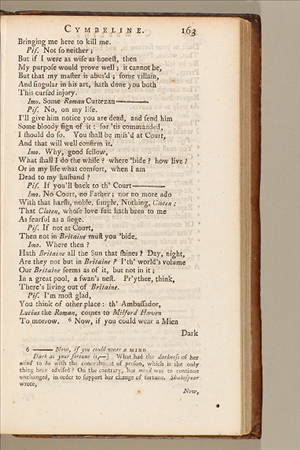 CYMBELINE. 163
Bringing me here to kill me.
Pis. Not so neither;
But if I were as wise as honest, then
My purpose would prove well; it cannot be,
But that my master is abus'd; some villain,
And singular in his art, hath done you both
This cursed injury.
Imo. Some Roman Curtezan———
Pis. No, on my life.
I'll give him notice you are dead, and send him
Some bloody sign of it: for 'tis commanded,
I should do so. You shall be miss'd at Court,
And that will well confirm it.
Imo. Why, good fellow,
What shall I do the while? where 'bide? how live?
Or in my life what comfort, when I am
Dead to my husband?
Pis. If you'll back to th' Court———
Imo. No Court, no Father; nor no more ado
With that harsh, noble, simple, Nothing, Cloten:
That Cloten, whose love-suit hath been to me
As fearful as a siege.
Pis. If not at Court,
Then not in Britaine must you 'bide.
Imo. Where then?
Hath Britaine all the Sun that shines? Day, night,
Are they not but in Britaine? I'th' world's volume
Our Britaine seems as of it, but not in it;
In a great pool, a swan's nest. Pr'ythee, think,
There's living out of Britaine.
Pis. I'm most glad,
You think of other place: th' Ambassador,
Lucius the Roman, comes to Milford Haven
To morrow. 6 Now, if you could wear a Mien
Dark
6 —— Now, if you could wear a MIND
Dark as your fortune is,—] What had the darkness of her
mind to do with the concealment of person, which is the only
thing here advised? On the contrary, her mind was to continue
unchanged, in order to support her change of fortune. Shakespear
wrote,
Now,